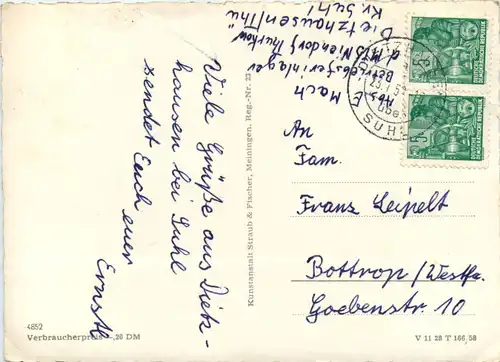 Viele Grüße aus Dietz-
hausen bei Suhl
sendet Euch euer
Ernstl
4852
Verbraucherpreis -,20 DM
Kunstanstalt Straub & Fischer, Meiningen. Reg.-Nr. 23
Abs. E. Mach
Betriebsferienlager
d. MTS Niendorf
Dietzhausen/Thü
Kr. Suhl
DEUTSCHE
DEMOKRATISCHE REPUBLIK
5
DEUTSCHE
DEMOKRATISCHE REPUBLIK
5
SUHL
An
Fam.
Franz Leipelt
Bottrop/Westfa.
Goebenstr. 10
V 11 28 T 166/58